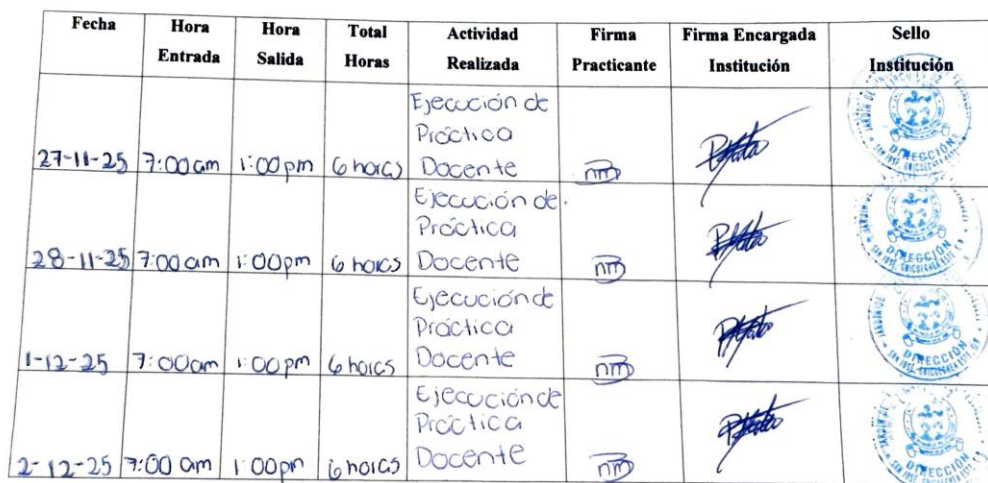 Fecha Hora Entrada Hora Salida Total Horas Actividad Realizada Firma Practicante Firma Encargada Institución Sello Institución
27-11-25 7:00 am 1:00 pm 6 horas Ejecución de Práctica Docente nm DIRECCIÓN
28-11-25 7:00 am 1:00 pm 6 horas Ejecución de Práctica Docente nm DIRECCIÓN
1-12-25 7:00 am 1:00 pm 6 horas Ejecución de Práctica Docente nm DIRECCIÓN
2-12-25 7:00 am 1:00 pm 6 horas Ejecución de Práctica Docente nm DIRECCIÓN